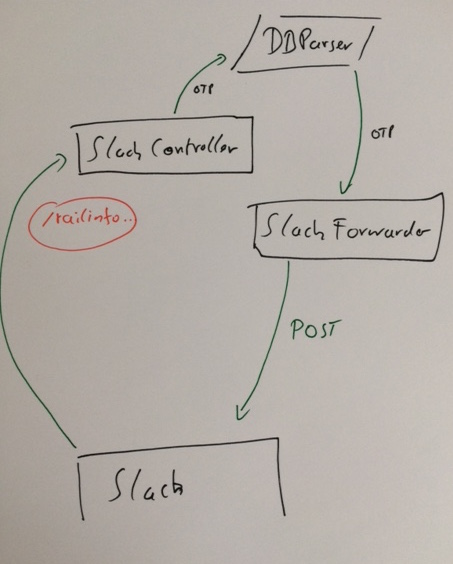 DBParser
OTP
Slack Controller
OTP
/railinfo..
Slack Forwarder
POST
Slack